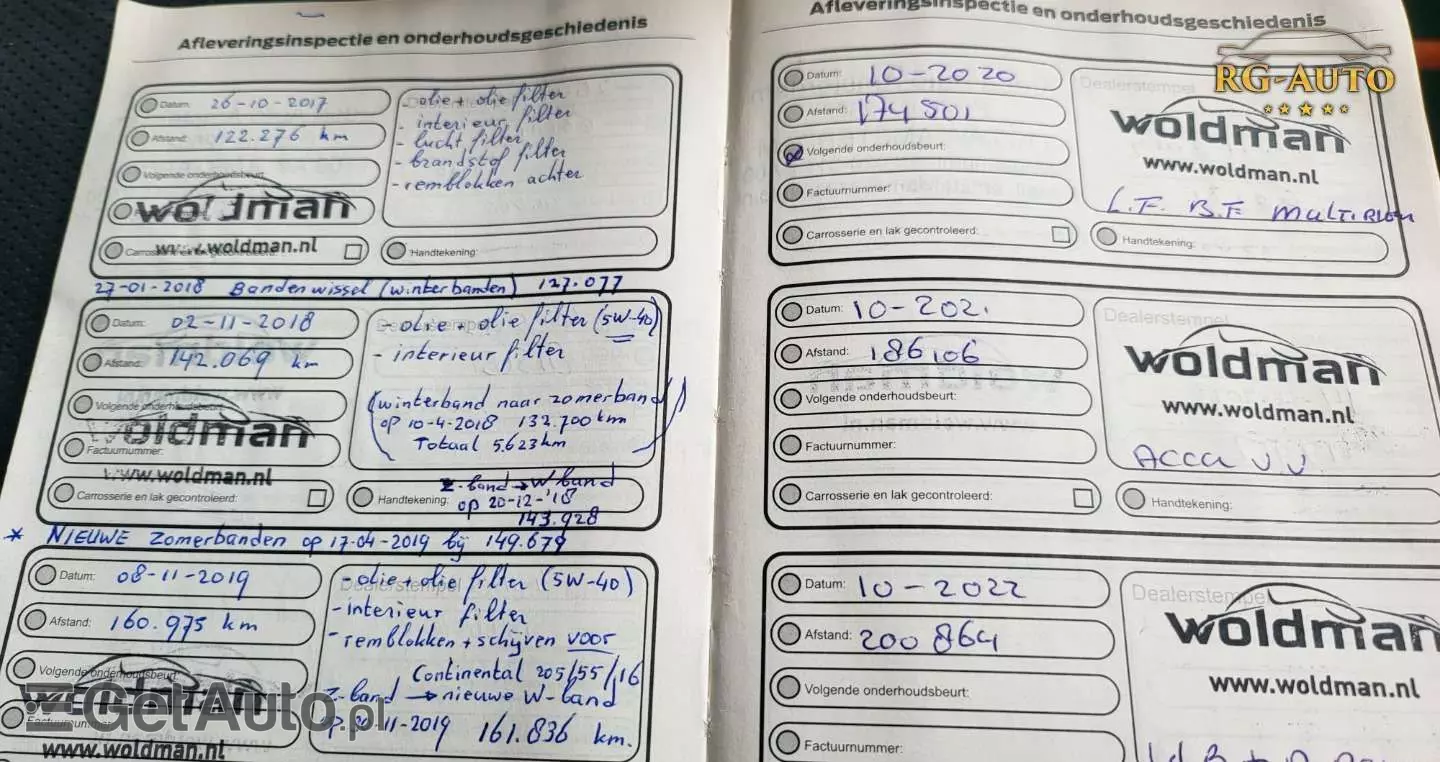 Afleveringsinspectie en onderhoudsgeschiedenis
Datum: 26-10-2017
Afstand: 122.276 km
Volgende onderhoudsbeurt:
woldman
www.woldman.nl
- olie + olie filter
- interieur filter
- lucht filter
- brandstof filter
- remblokken achter
Handtekening:
27-01-2018 Bandenwissel (winterbanden) 127.077
Datum: 02-11-2018
Afstand: 142.069 km
Volgende onderhoudsbeurt:
woldman
Factuurnummer:
www.woldman.nl
Carrosserie en lak gecontroleerd:
- olie + olie filter (5W-40)
- interieur filter
(winterband naar zomerband)
op 10-4-2018 132.700 km
Totaal 5.623 km
Handtekening:
z-band → W band
op 20-12-'18
143.928
* NIEUWE Zomerbanden op 17-04-2019 bij 149.679
Datum: 08-11-2019
Afstand: 160.975 km
Volgende onderhoudsbeurt:
Factuurnummer:
www.woldman.nl
- olie + olie filter (5W-40)
- interieur filter
- remblokken + schijven voor
Continental 205/55/16
Z-band → nieuwe W-band
11-2019 161.836 km.
GetAuto.pl
Afleveringsinspectie en onderhoudsgeschiedenis
RG-AUTO
Datum: 10-2020
Afstand: 174501
Volgende onderhoudsbeurt:
Factuurnummer:
Carrosserie en lak gecontroleerd:
Dealerstempel
woldman
www.woldman.nl
L.F. B.F
Handtekening:
Datum: 10-2021
Afstand: 186106
Volgende onderhoudsbeurt:
Factuurnummer:
Carrosserie en lak gecontroleerd:
Dealerstempel
woldman
www.woldman.nl
Accu
Handtekening:
Datum: 10-2022
Afstand: 200864
Volgende onderhoudsbeurt:
Factuurnummer:
Dealerstempel
woldman
www.woldman.nl